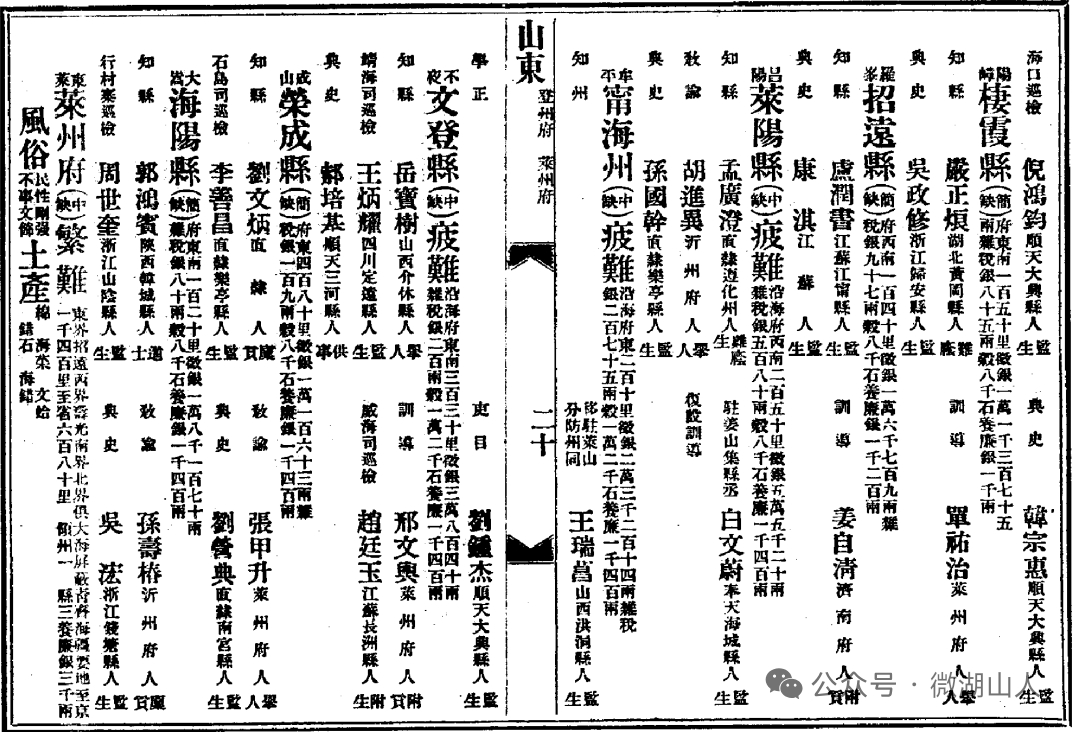 海口巡檢 倪鴻鈞 順天大興縣人 監生 典史 韓宗惠 順天大興縣人 監生
棲霞縣(簡缺) 府東南一百五十里徵銀一萬一千三百七十五兩雜稅銀八十五兩穀八千石養廉銀一千兩
知縣 嚴正烺 湖北黃岡縣人 難廕 訓導 單祐治 萊州府人 舉人
典史 吳政修 浙江歸安縣人 監生
招遠縣(簡缺) 府西南一百四十里徵銀一萬六千七百九兩雜稅銀九十七兩穀八千石養廉銀一千二百兩
知縣 盧潤書 江蘇江甯縣人 監生 訓導 姜自清 濟南府人 附貢
典史 康淇 江蘇人 監生
萊陽縣(中缺) 疲難 沿海府西南二百五十里徵銀五萬五千二十兩雜稅銀五百八十兩穀八千石養廉銀一千四百兩
知縣 孟廣澄 直隸遵化州人 難廕生 駐姜山集縣丞 白文蔚 奉天海城縣人 監生
教諭 胡進異 沂州府人 舉人 復設訓導
典史 孫國幹 直隸樂亭縣人 監生
甯海州(中缺) 疲難 沿海府東二百十里徵銀二萬三千二百十四兩雜稅銀二百七十五兩穀一萬二千石養廉一千四百兩
知州 移駐萊山分防州同 王瑞菖 山西洪洞縣人 監生
山東 登州府 萊州府 二十
學正 吏目 劉鍾杰 順天大興縣人 監生
文登縣(中缺) 疲難 沿海府東南三百三十里徵銀三萬八百四十兩雜稅銀二百兩穀一萬二千石養廉一千四百兩
知縣 岳寶樹 山西介休縣人 舉人 訓導 邢文輿 萊州府人 附貢
靖海司巡檢 王炳耀 四川定遠縣人 監生 威海司巡檢 趙廷玉 江蘇長洲縣人 附生
典史 郝培基 順天三河縣人 供事
榮成縣(簡缺) 府東四百八十里徵銀一萬一百六十三兩雜稅銀一百九兩穀八千石養廉銀一千四百兩
知縣 劉文炳 直隸人 廩貢 教諭 張甲升 萊州府人 舉人
石島司巡檢 李善昌 直隸樂亭縣人 監生 典史 劉營典 直隸南宮縣人 監生
海陽縣(簡缺) 府東南一百二十里徵銀一萬八千一百七十兩雜稅銀八十兩穀八千石養廉銀一千四百兩
知縣 郭鴻賓 陝西韓城縣人 進士 教諭 孫壽椿 沂州府人 廩貢
行村寨巡檢 周世奎 浙江山陰縣人 監生 典史 吳浤 浙江錢塘縣人 監生
萊州府(中缺) 繁難 東界招遠西界壽光南界北界俱大海屏蔽青齊海疆要地至京一千四百里至省六百八十里 領州一 縣三養廉銀三千兩
風俗 民性剛強不事文飾 土產 綿 海菜 文蛤 錯石 海錯
公众号·微湖山人